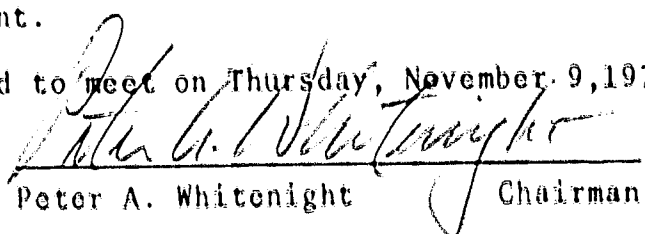 nt.
d to meet on Thursday, November 9,197
Peter A. Whitenight
Peter A. Whitenight Chairman